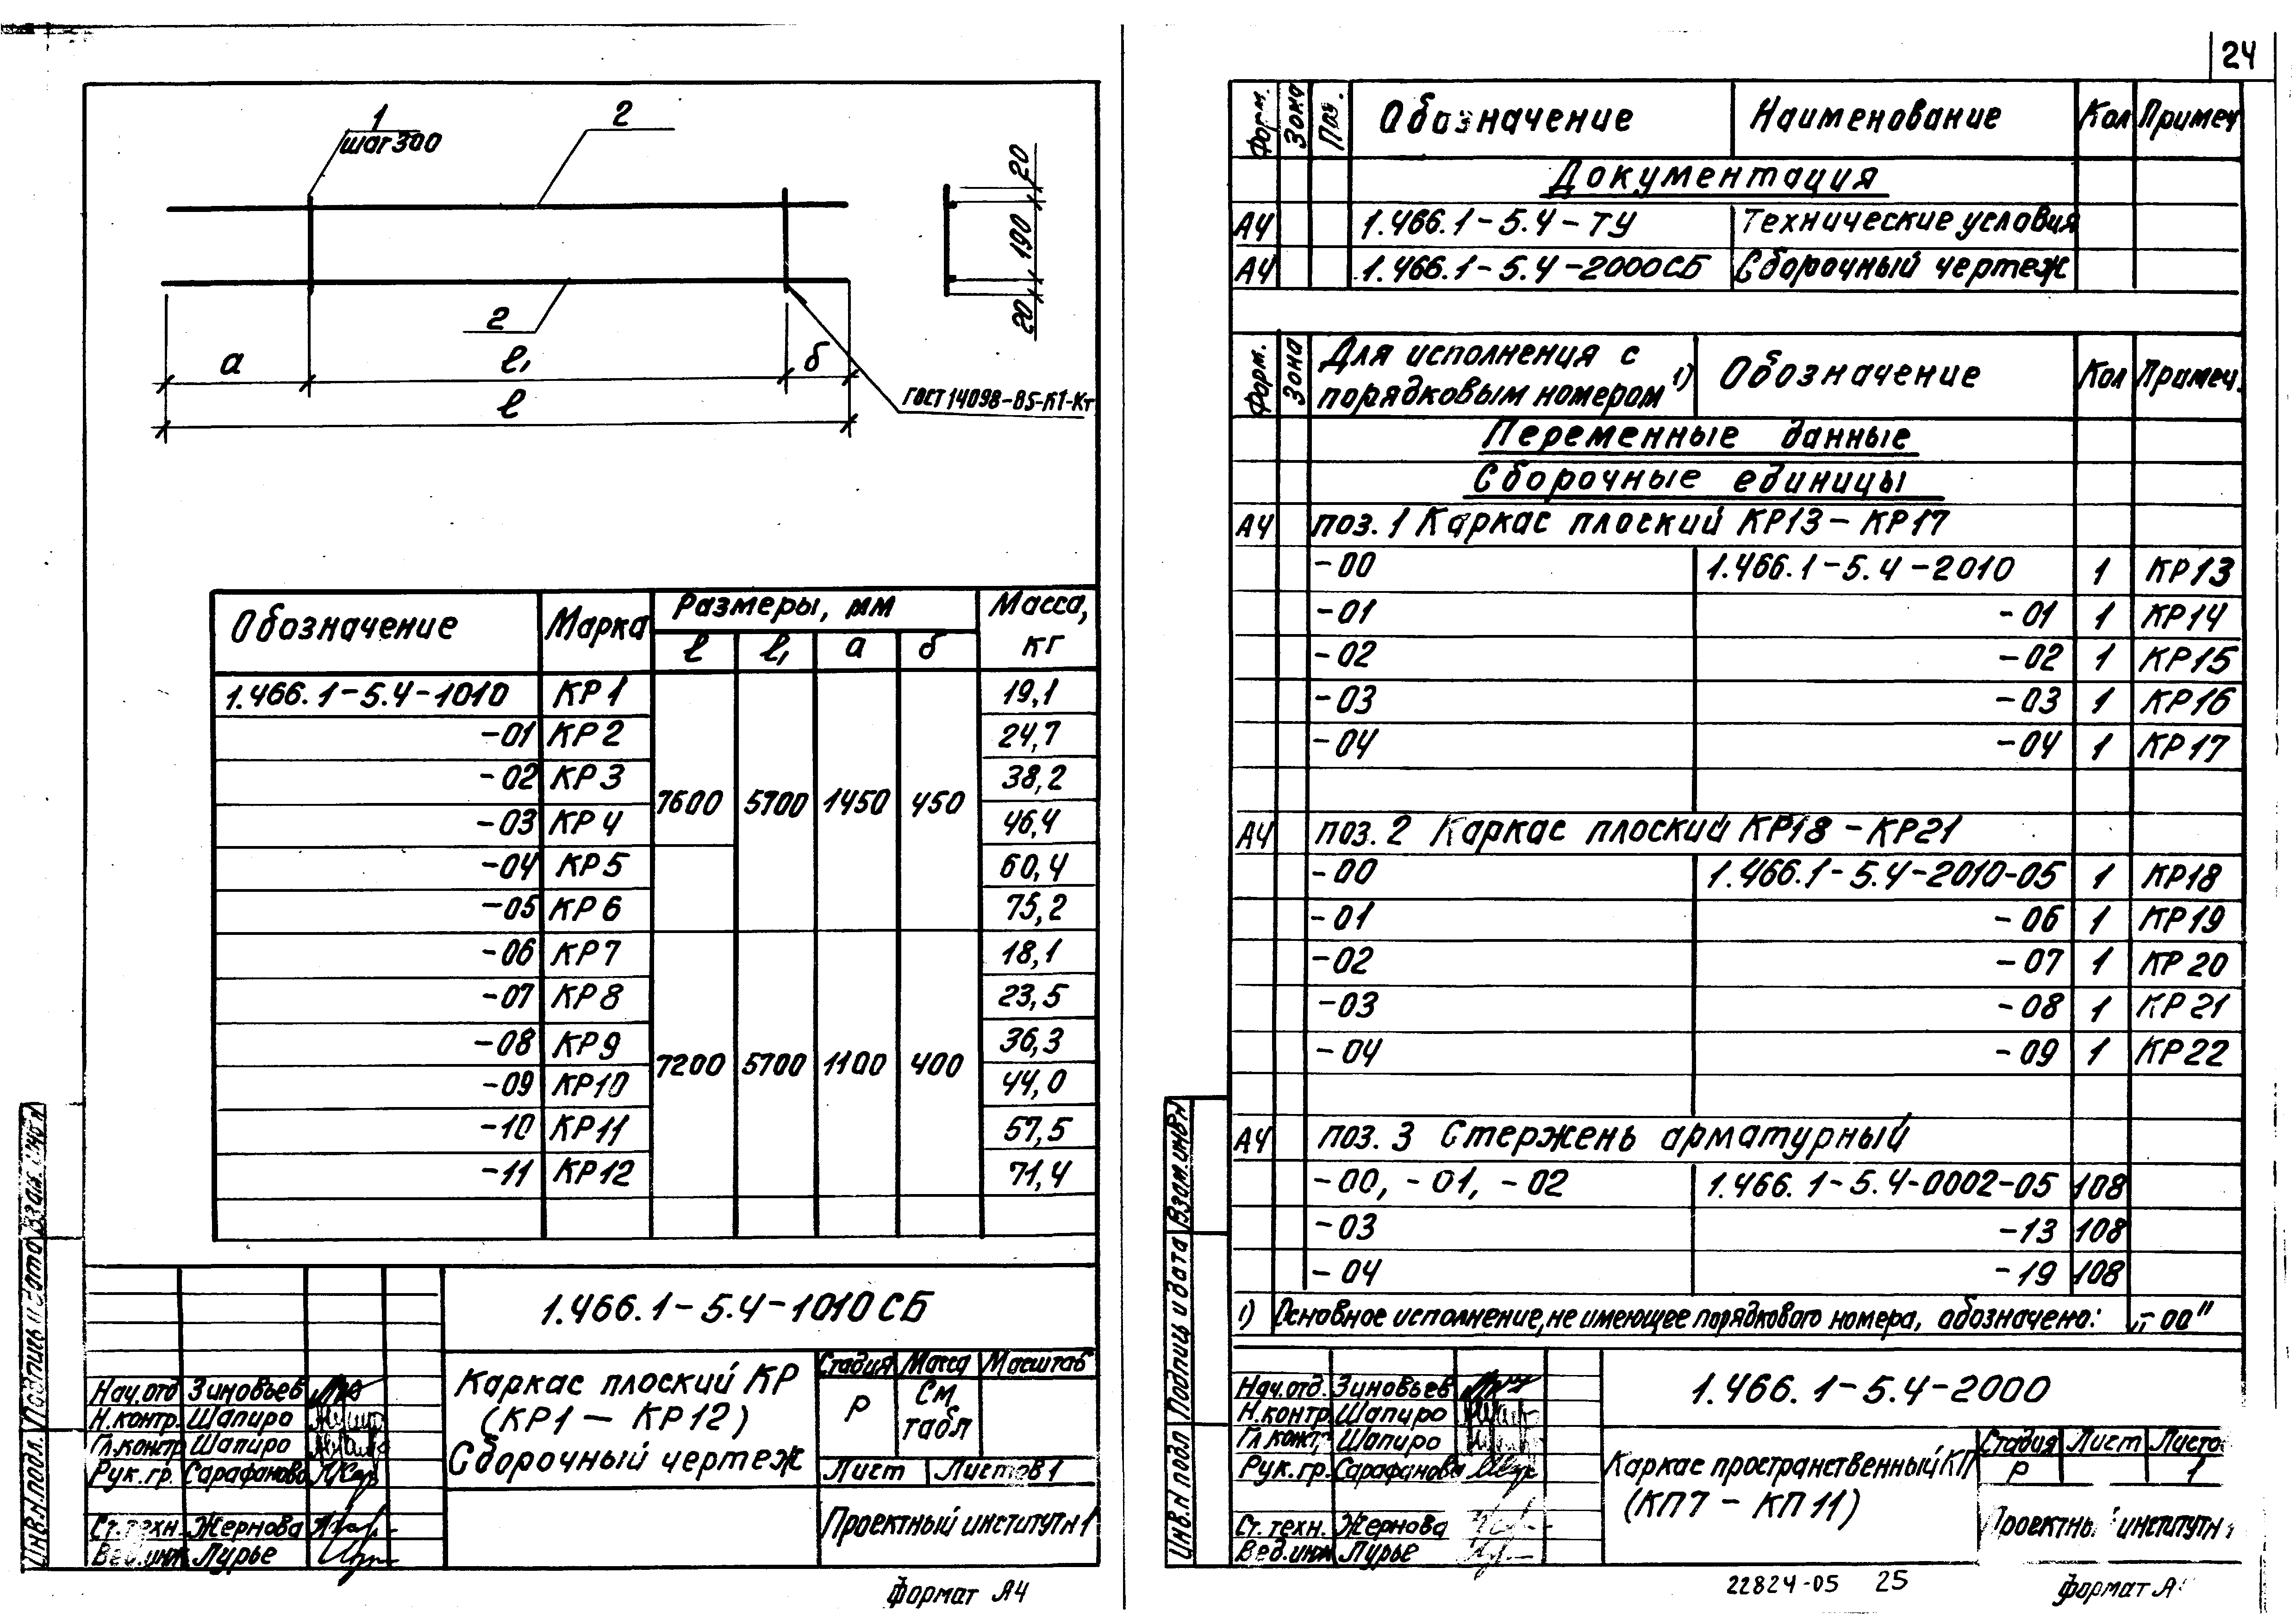 24
1
шаг 300
2
2
20
190
20
а
ℓ₁
б
ℓ
ГОСТ 14098-85-К1-Кт
Обозначение Марка Размеры, мм Масса, кг
ℓ ℓ₁ а б
1.466.1-5.4-1010 КР1 19,1
-01 КР2 24,7
-02 КР3 38,2
7600 5700 1450 450
-03 КР4 46,4
-04 КР5 60,4
-05 КР6 75,2
-06 КР7 18,1
-07 КР8 23,5
-08 КР9 36,3
7200 5700 1100 400
-09 КР10 44,0
-10 КР11 57,5
-11 КР12 71,4
1.466.1-5.4-1010СБ
Каркас плоский КР
(КР1 – КР12)
Сборочный чертеж
Стадия Масса Масштаб
Р См. табл
Лист Листов 1
Проектный институт н1
Нач.отд Зиновьев
Н.контр. Шапиро
Гл.констр Шапиро
Рук.гр. Сарафанова
Ст.техн. Жернова
Вед.инж Лурье
Инв.N подл. Подпись и дата Взам. инв N
Формат А4
Форм. Зона Поз. Обозначение Наименование Кол Примеч
Документация
А4 1.466.1-5.4-ТУ Технические условия
А4 1.466.1-5.4-2000СБ Сборочный чертеж
Форм. Зона Для исполнения с порядковым номером 1) Обозначение Кол Примеч.
Переменные данные
Сборочные единицы
А4 поз. 1 Каркас плоский КР13 – КР17
-00 1.466.1-5.4-2010 1 КР13
-01 -01 1 КР14
-02 -02 1 КР15
-03 -03 1 КР16
-04 -04 1 КР17
А4 поз. 2 Каркас плоский КР18 – КР21
-00 1.466.1-5.4-2010-05 1 КР18
-01 -06 1 КР19
-02 -07 1 КР20
-03 -08 1 КР21
-04 -09 1 КР22
А4 поз. 3 Стержень арматурный
-00, -01, -02 1.466.1-5.4-0002-05 108
-03 -13 108
-04 -19 108
1) Основное исполнение, не имеющее порядкового номера, обозначено: „-00"
1.466.1-5.4-2000
Каркас пространственный КП
(КП7 – КП11)
Стадия Лист
Р 1
Проектный институт н
Нач.отд. Зиновьев
Н.контр Шапиро
Гл.констр. Шапиро
Рук.гр. Сарафанова
Ст.техн. Жернова
Вед.инж Лурье
Инв.N подл Подпись и дата Взам.инв N
22824-05 25
Формат А